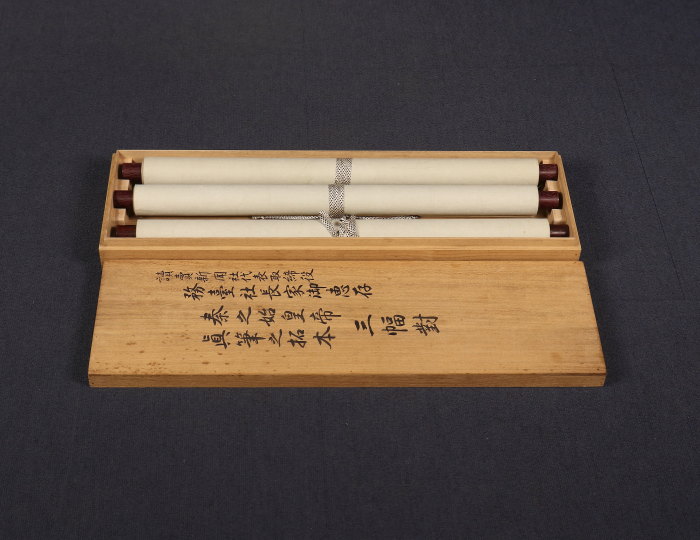 讀賣新聞社代表取締役
務臺社長家御恵存
秦之始皇帝
眞筆之拓本
三幅對